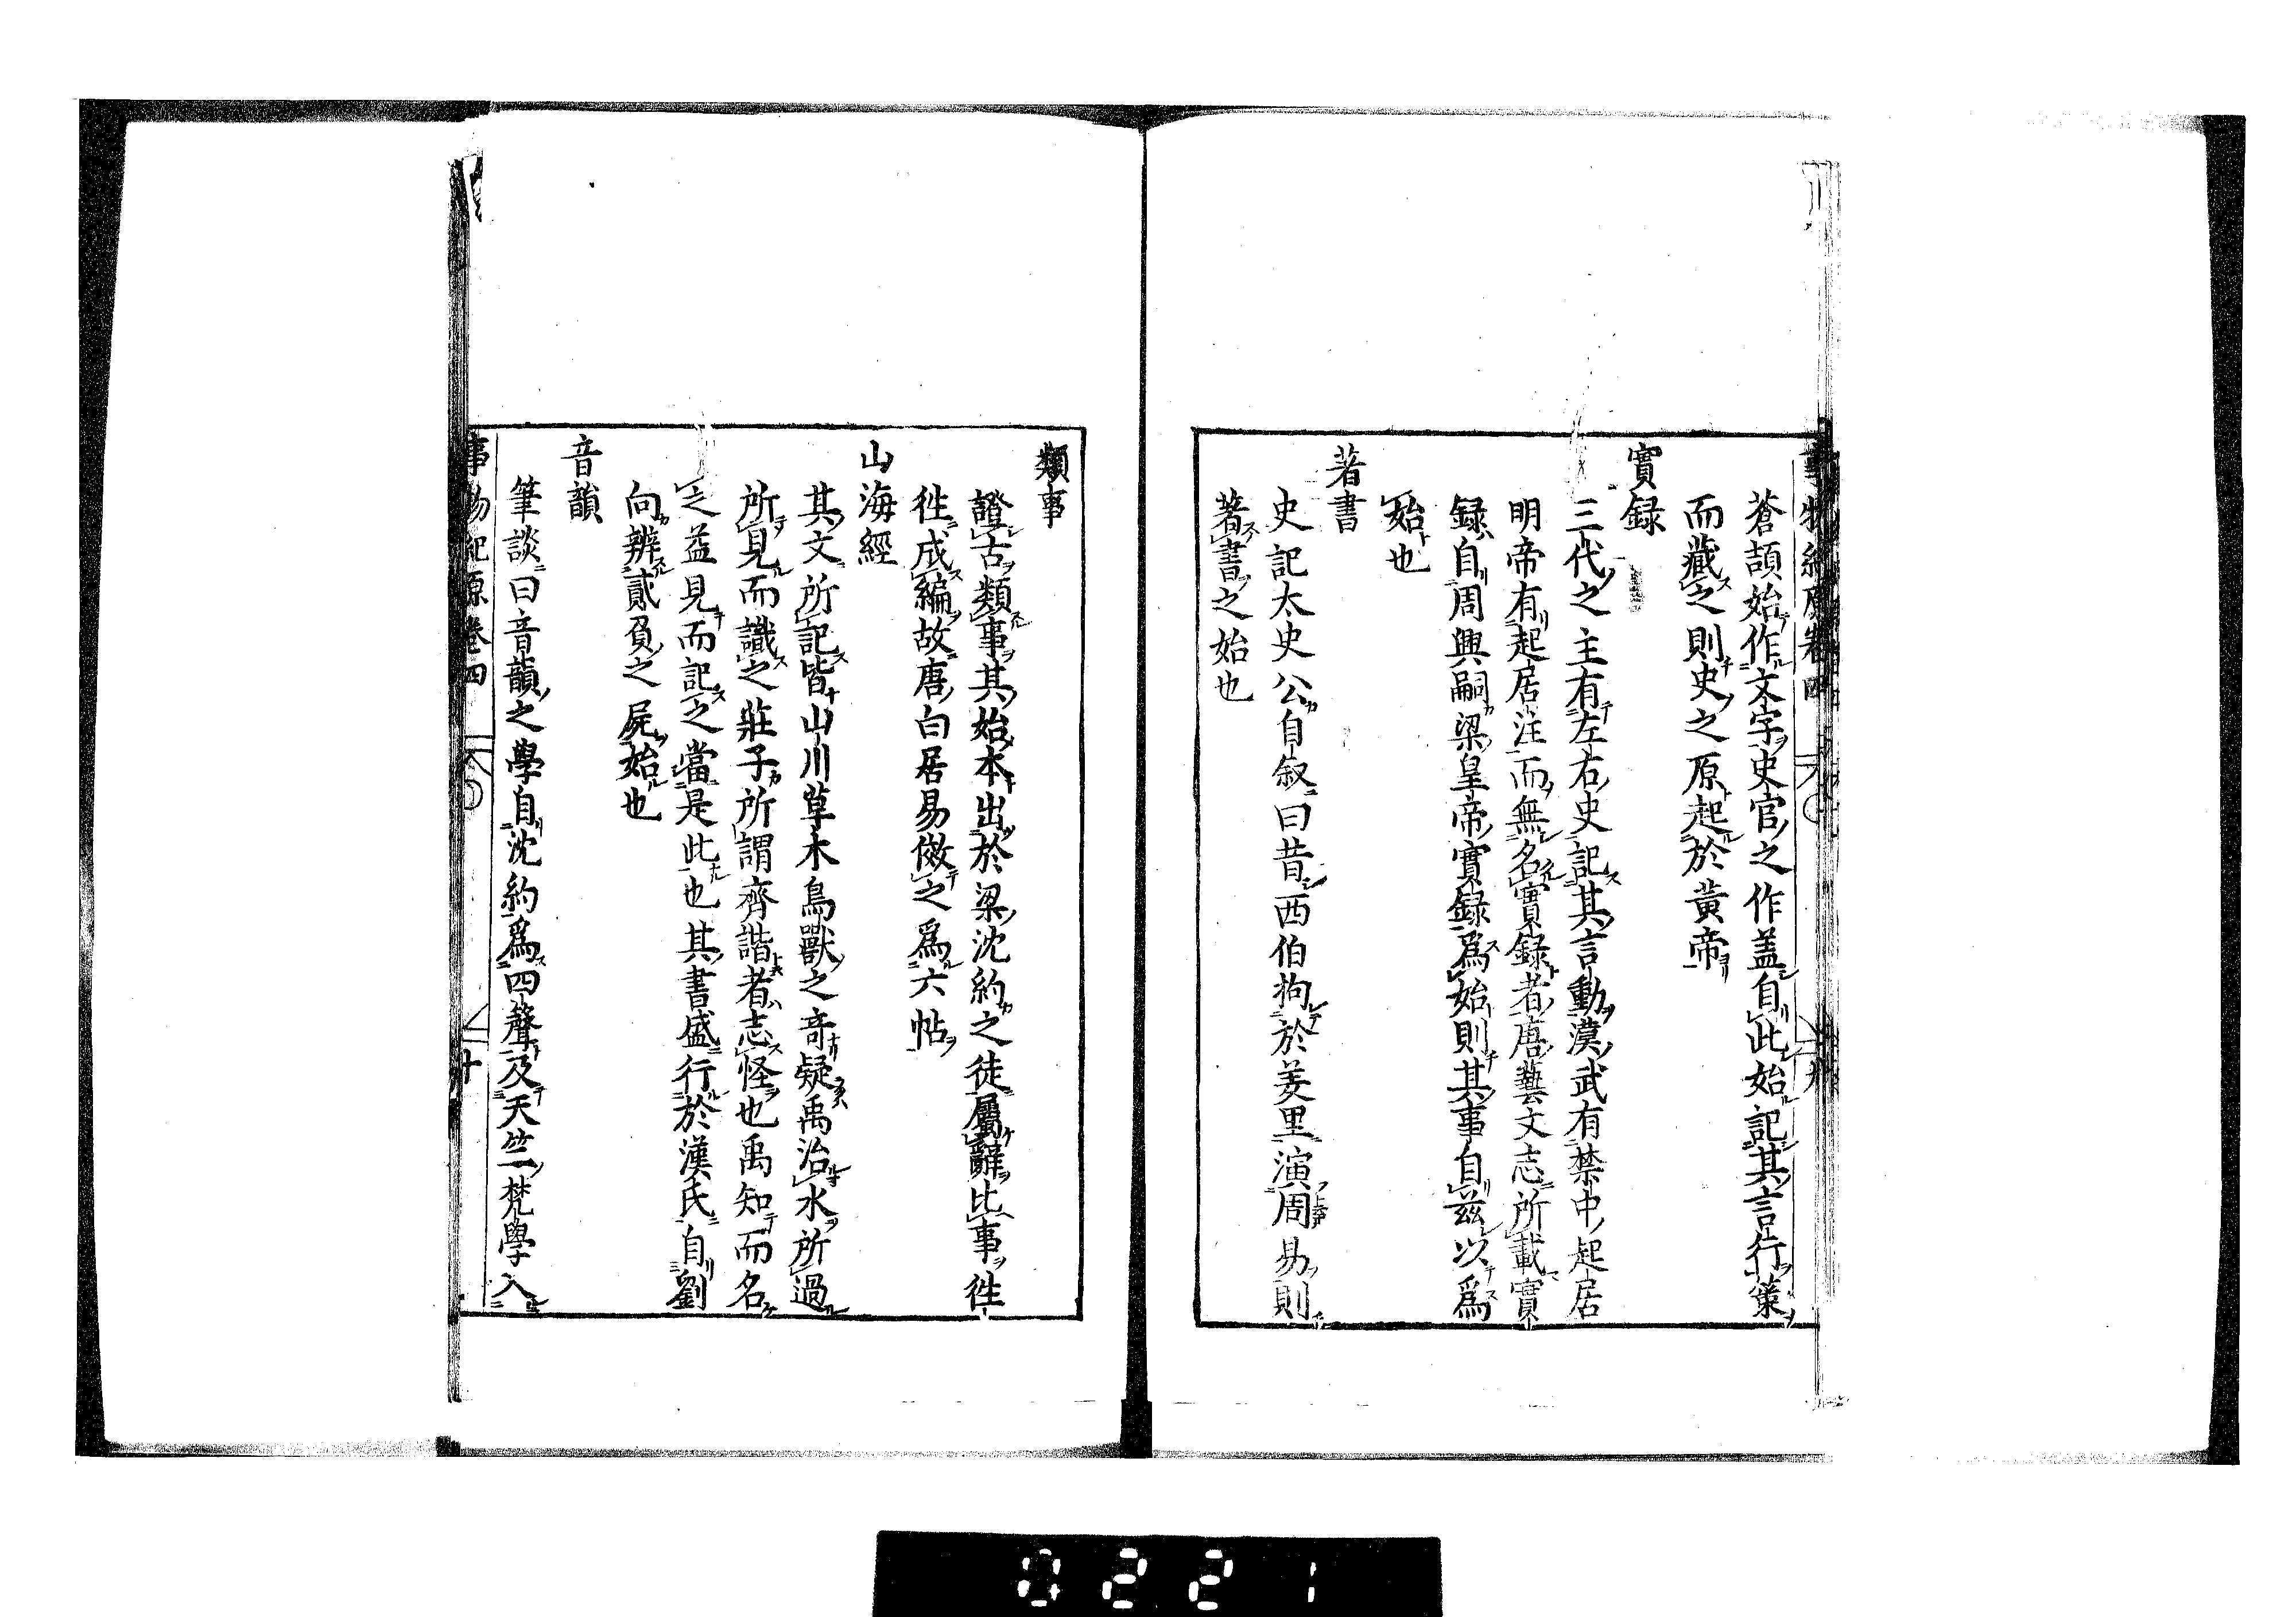 事物紀原卷四
九
蒼頡始作文字史官之作盖自此始記其言行策
而藏之則史之原起於黃帝
實録
三代之主有左右史記其言動漢武有禁中起居
明帝有起居注而無名實録者唐藝文志所載實
録自周興嗣梁皇帝實録爲始則其事自兹以爲
始也
著書
史記太史公自叙曰昔西伯拘於羑里演周易則
著書之始也
類事
證古類事其始本出於梁沈約之徒屬辭比事徃
徃成編故唐白居易倣之爲六帖
山海經
其文所記皆山川草木鳥獸之竒疑禹治水所過
所見而識之莊子所謂齊諧者志怪也禹知而名
之益見而記之當是此也其書盛行於漢氏自劉
向辨貳負之屍始也
音韻
筆談曰音韻之學自沈約爲四聲及天竺梵學入
事物紀原卷四
十
0221